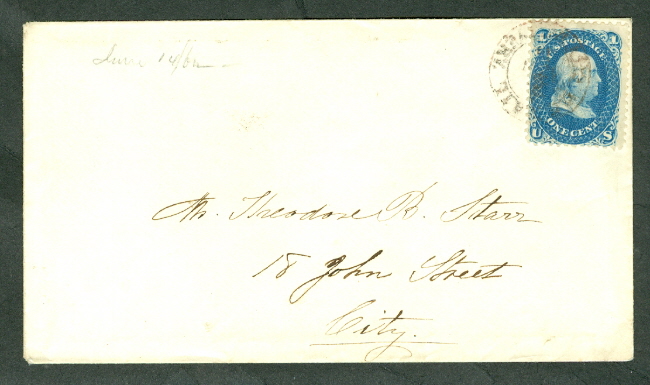 June 14/62
U.S. POSTAGE
ONE CENT
U S
Mr. Theodore B. Starr
18 John Street
City.